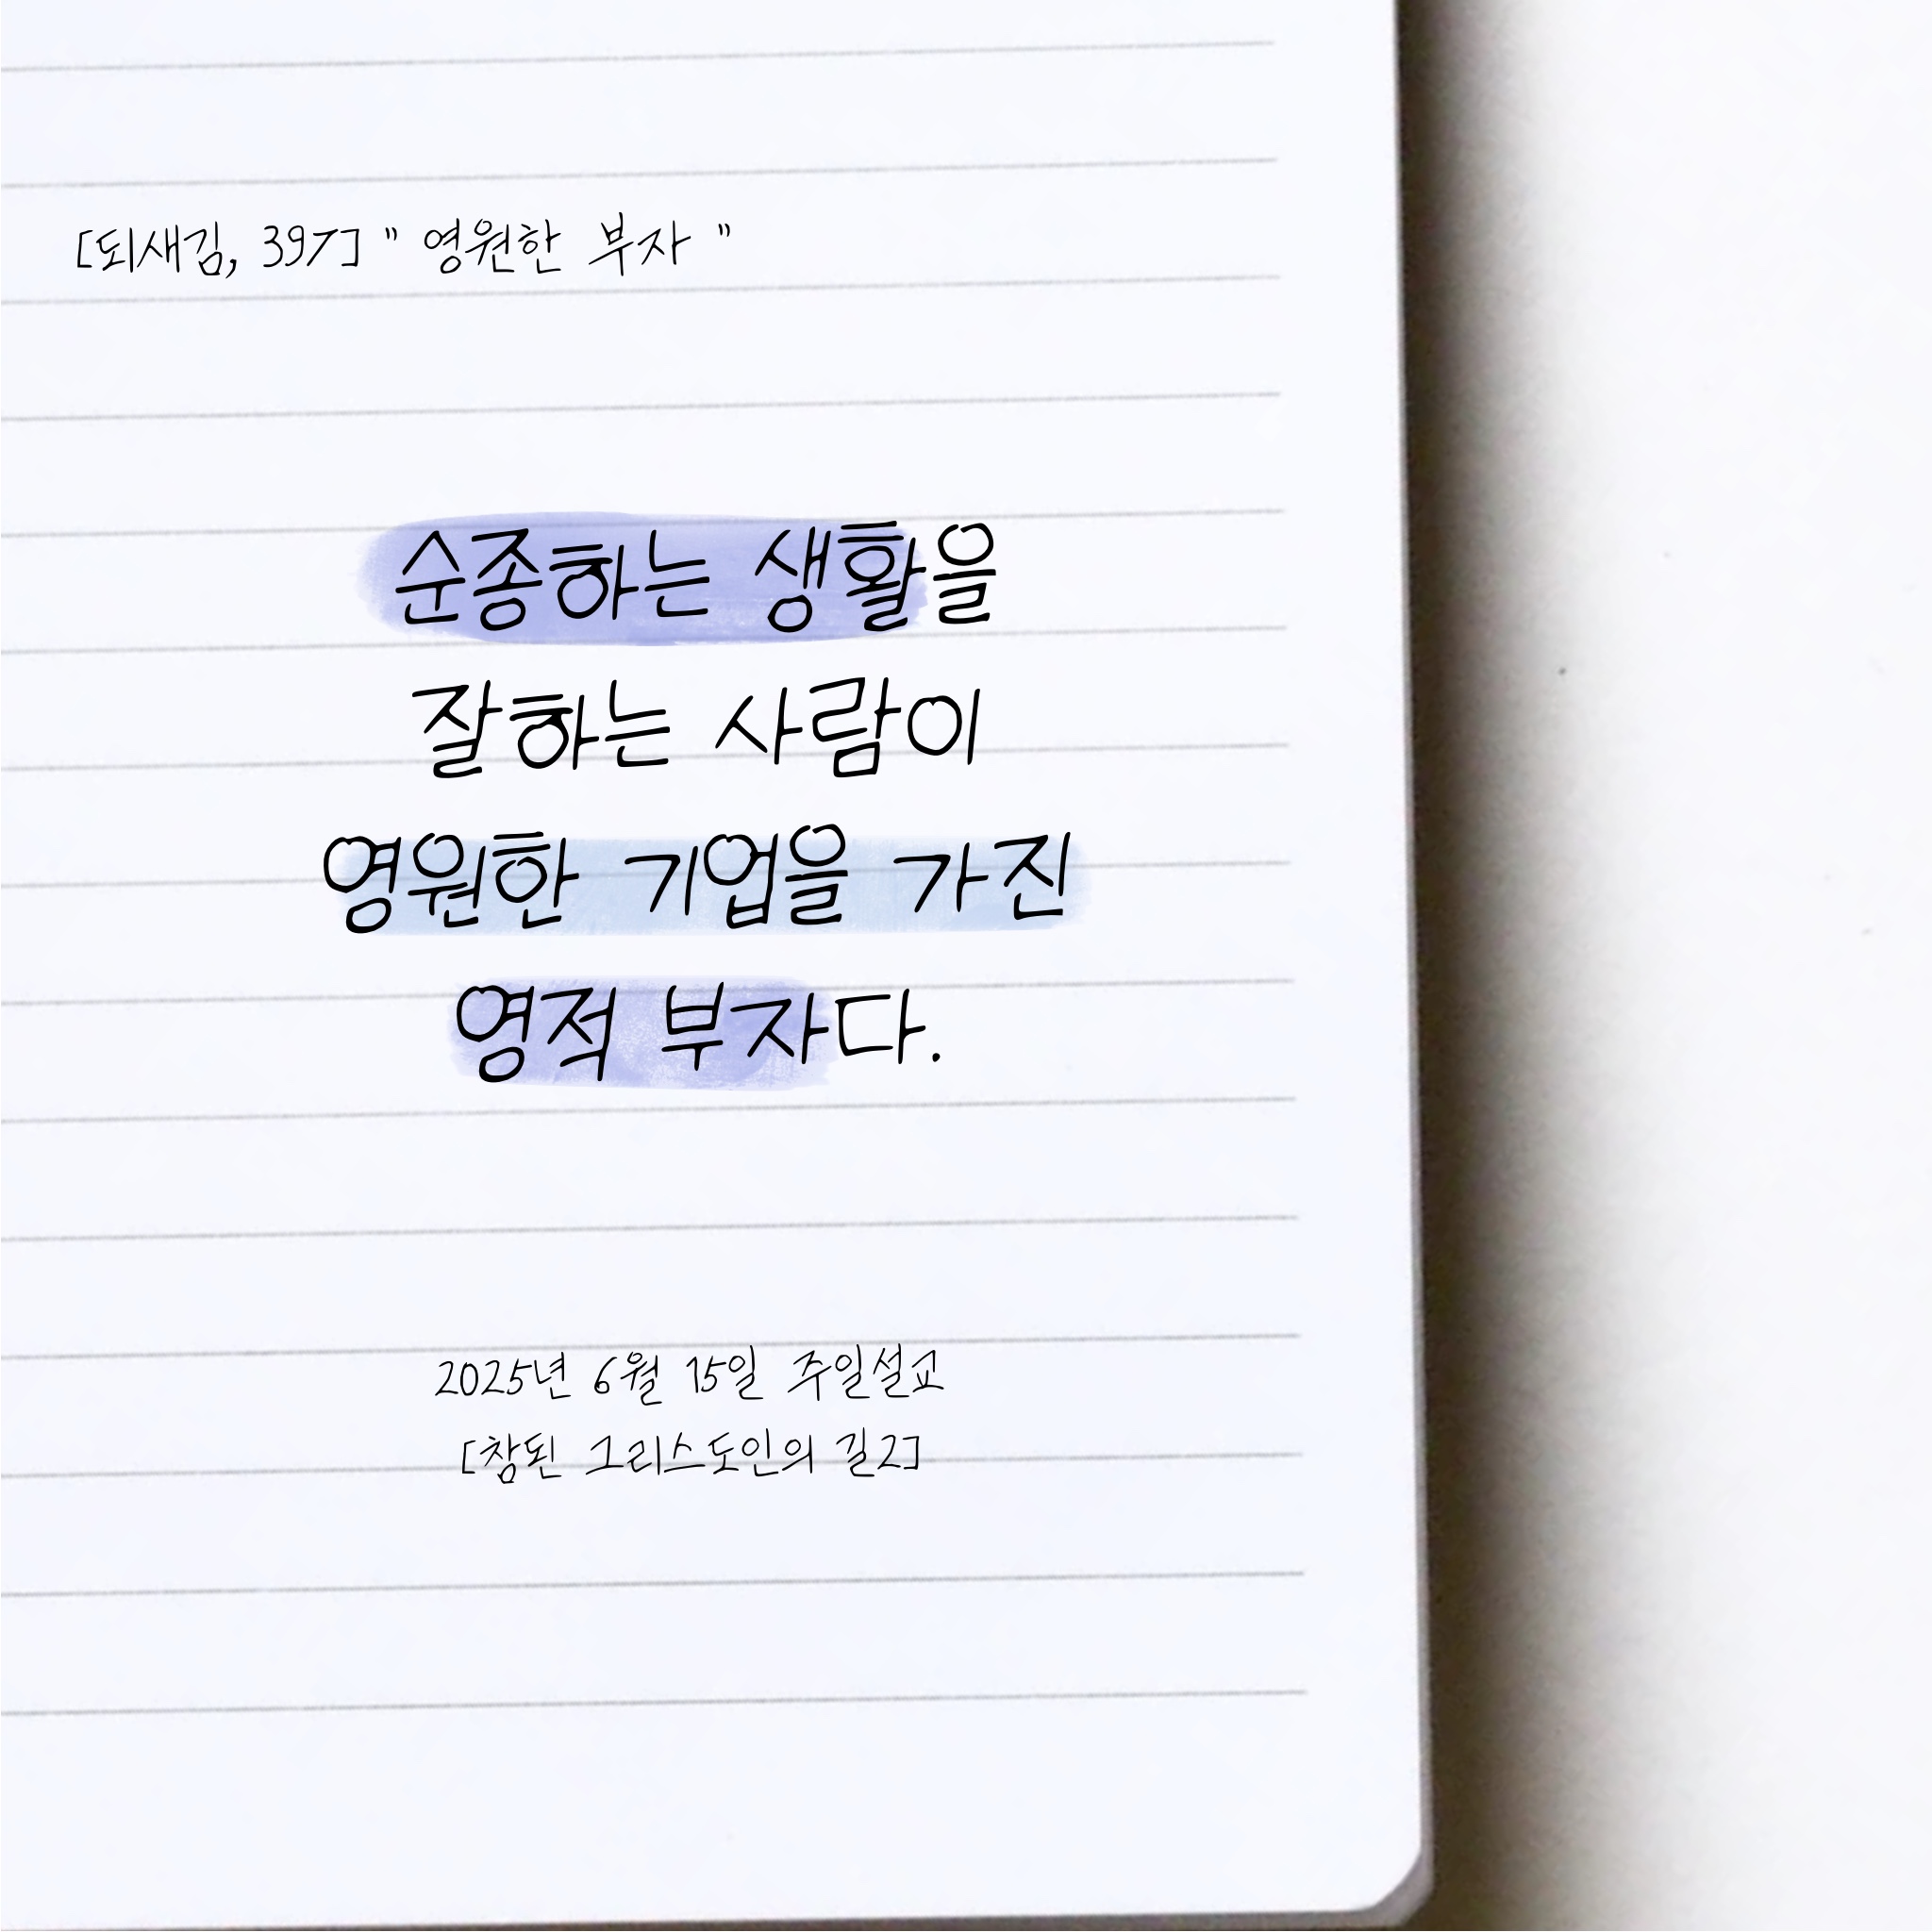 [되새김, 397] " 영원한 부자 "
순종하는 생활을
잘하는 사람이
영원한 기업을 가진
영적 부자다.
2025년 6월 15일 주일설교
[참된 그리스도인의 길2]